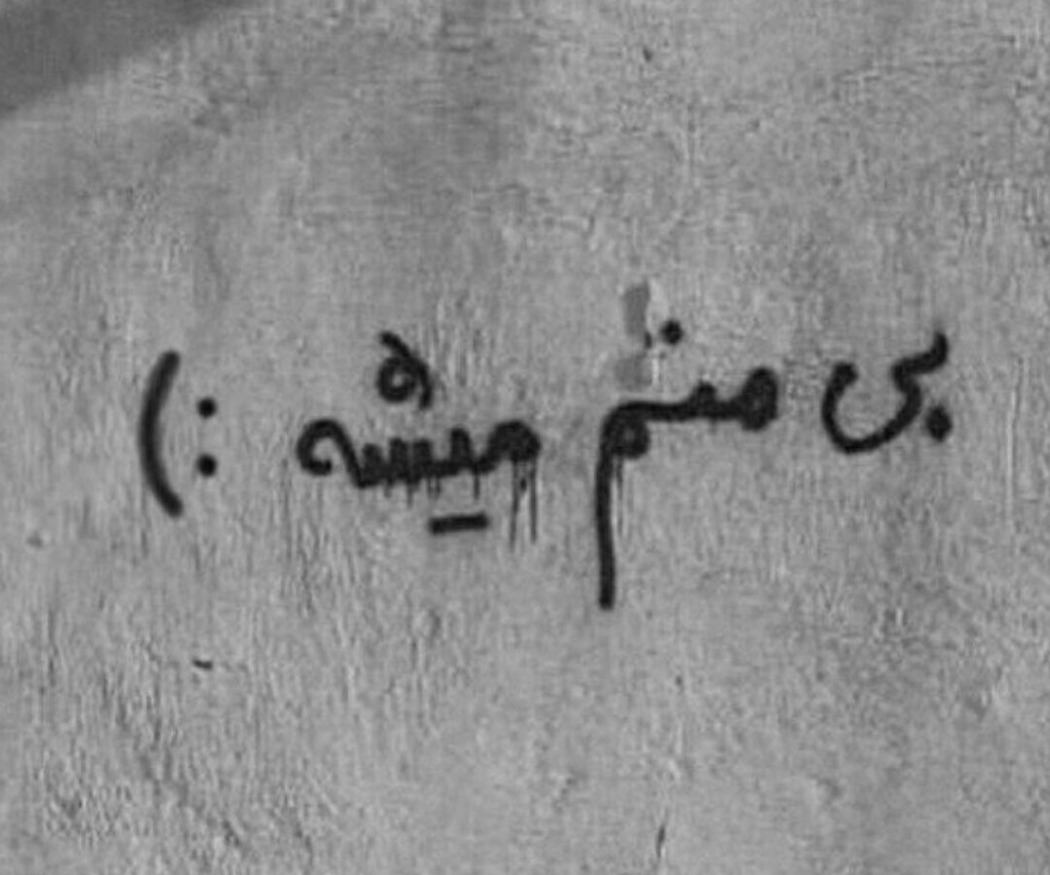 بی منم میشه :)